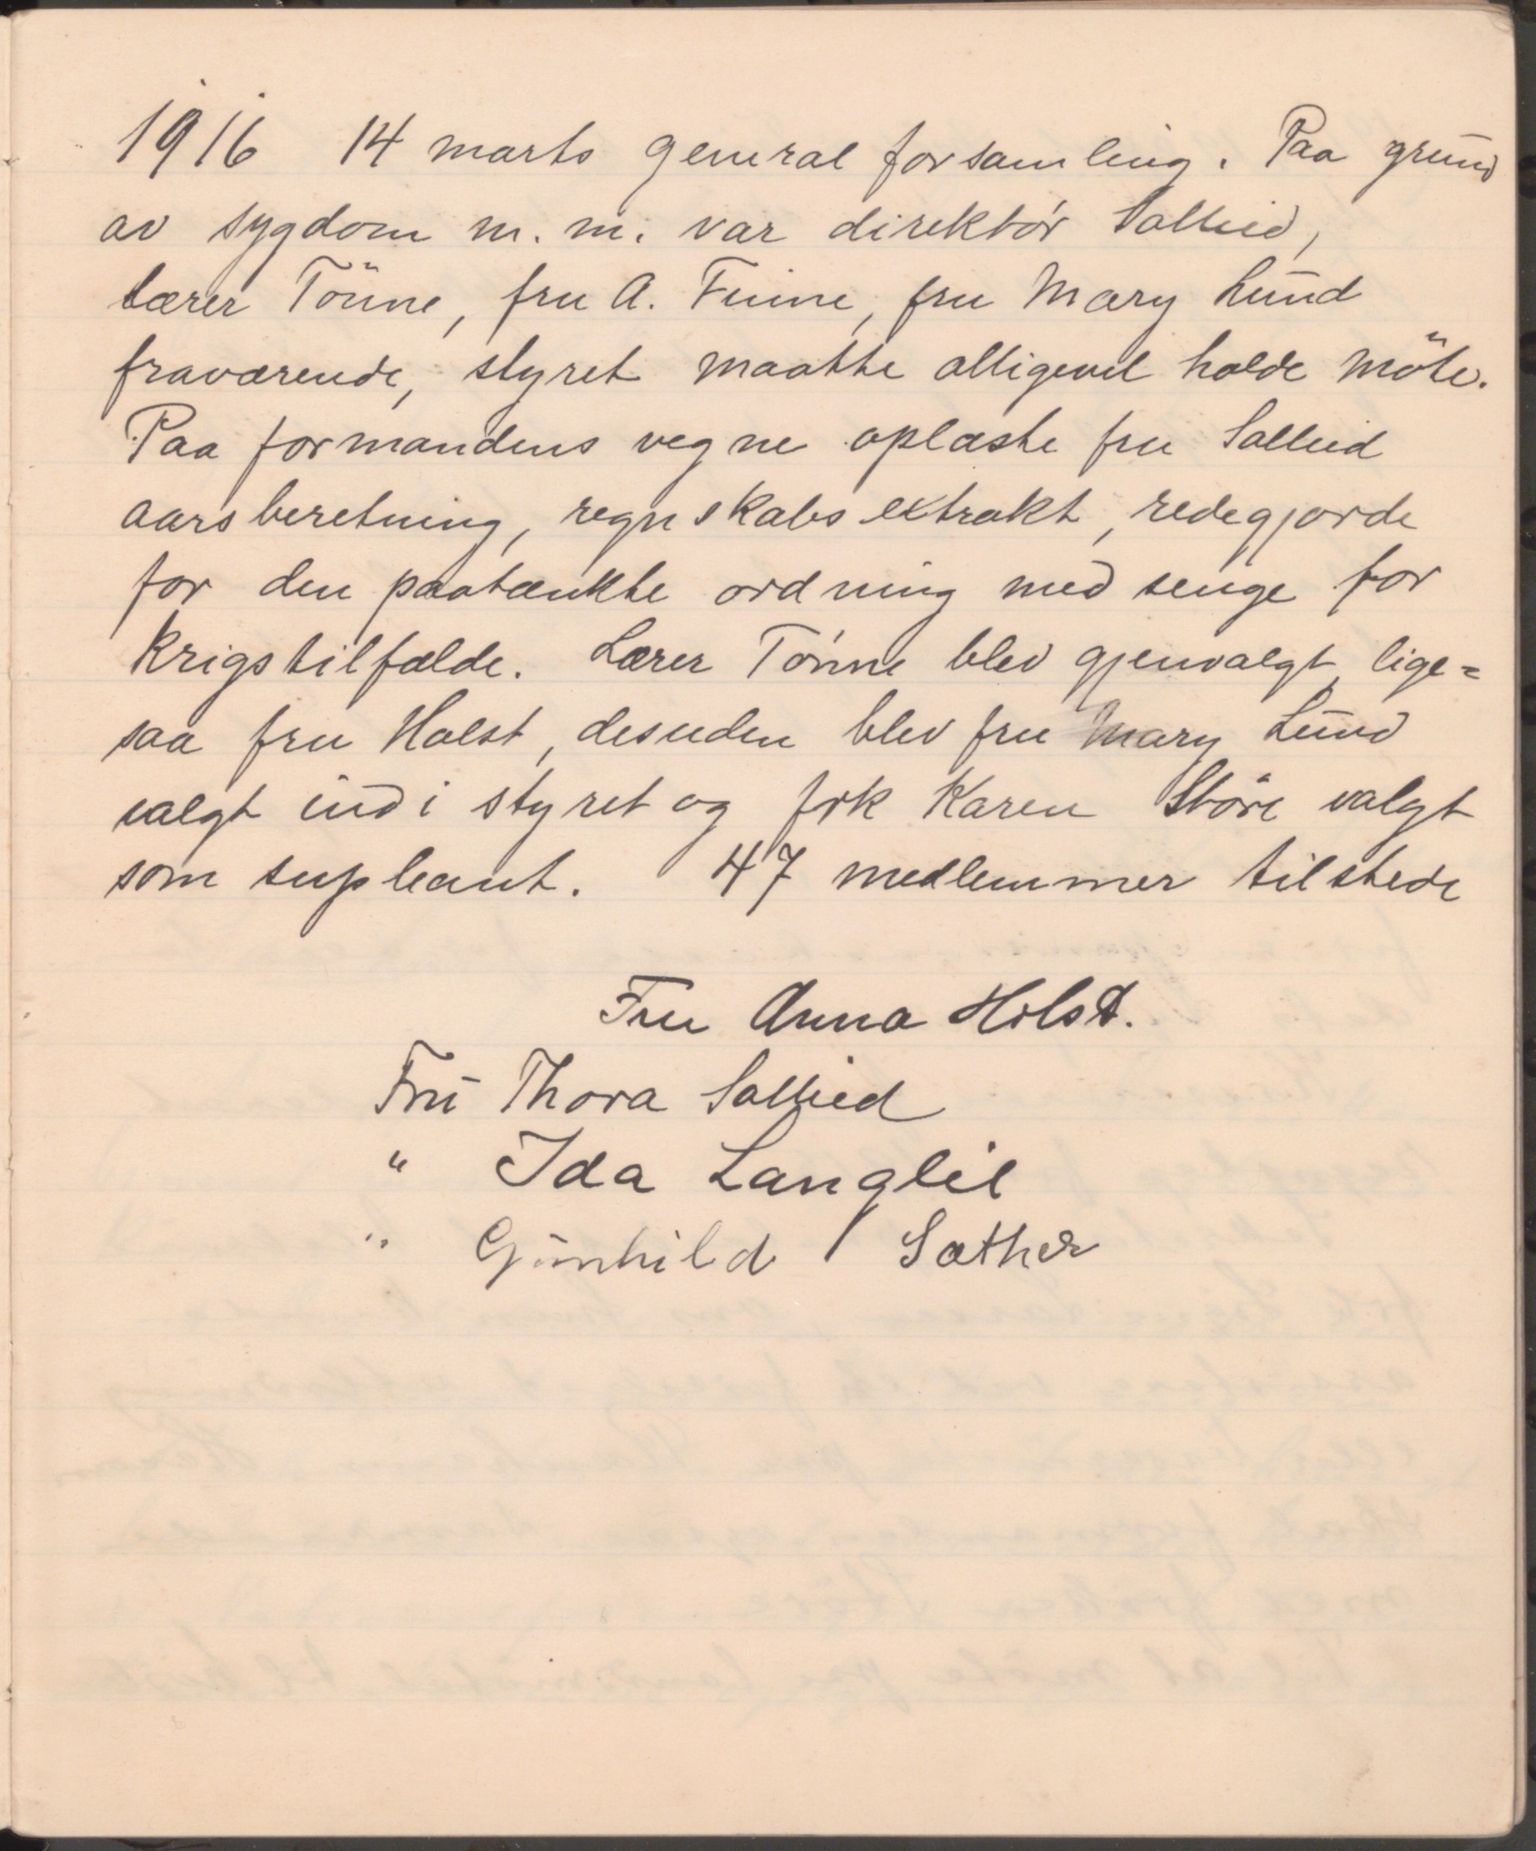 1916 14 marts general forsamling. Paa grund
av sygdom m. m. var direktör Sollied,
lærer Tönne, fru A. Finne, fru Mary Lund
fraværende, styret maatte alligevel holde möte.
Paa formandens vegne oplæste fru Sollied
aarsberetning, regnskabs extrakt, redegjorde
for den paatænkte ordning med senge for
krigstilfælde. Lærer Tönne blev gjenvalgt, lige=
saa fru Holst, desuden blev fru Mary Lund
valgt ind i styret og frk Karen Störe valgt
som supleant. 47 medlemmer tilstede
Fru Anna Holst.
Fru Thora Sollied
" Ida Langlil
" Gunhild Sæther